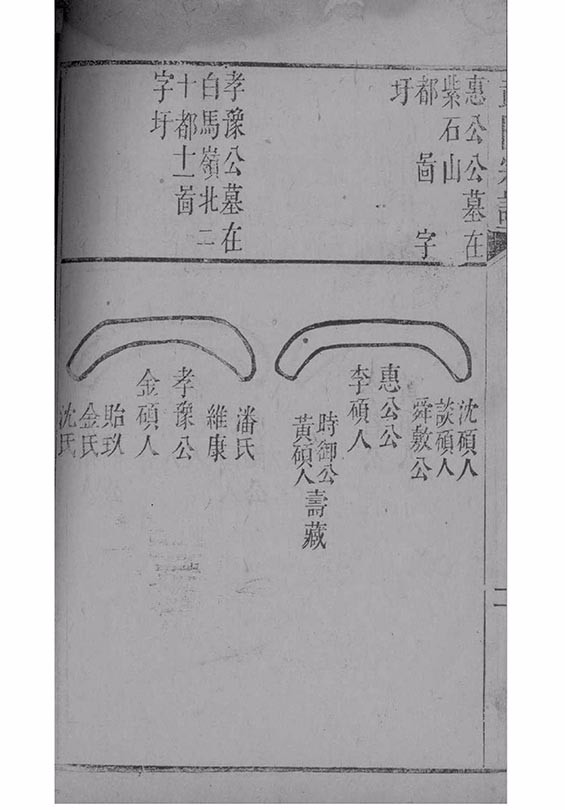 惠公公墓在
紫石山
都啚字
圩
孝豫公墓在
白馬嶺北二
十都十一啚
字圩
沈碩人
談碩人
舜敷公
惠公公
李碩人
時御公
黃碩人
壽藏
潘氏
維康
孝豫公
金碩人
貽玖
金氏
沈氏
二